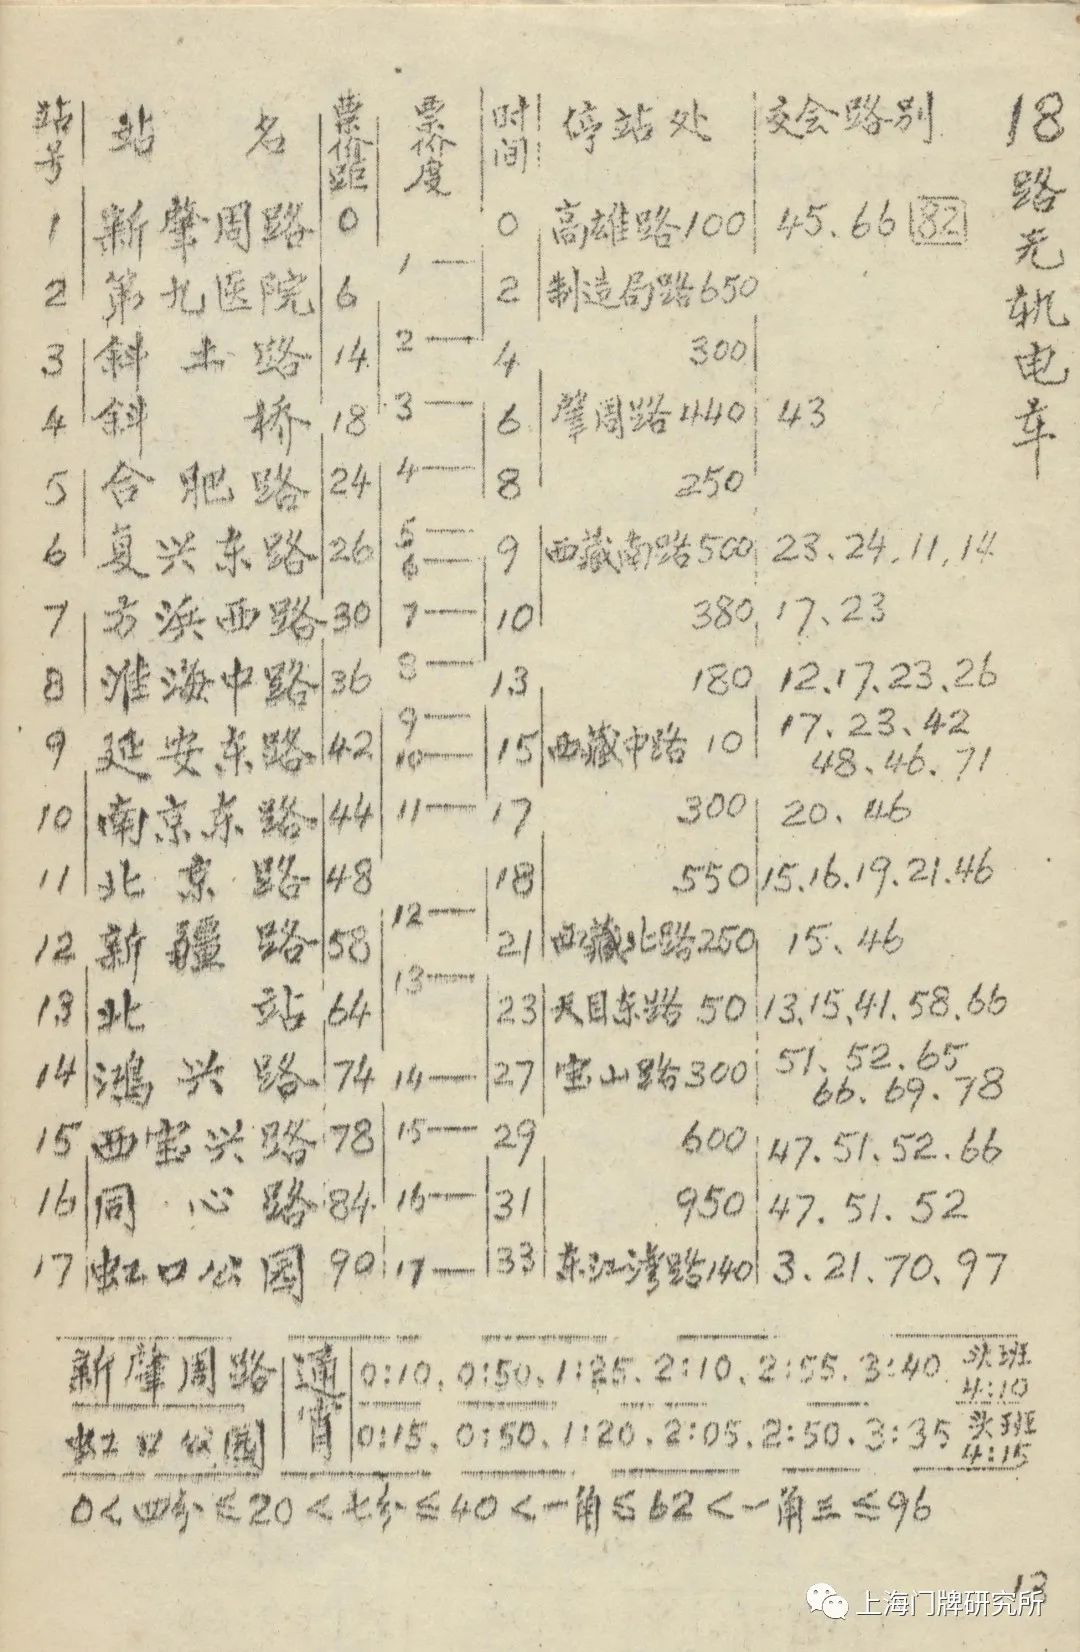 18路无轨电车
站号 站名 票价距 票价度 时间 停站处 交会路别
1 新肇周路 0 0 高雄路100 45、66 82
1—
2 第九医院 6 2 制造局路650
2—
3 斜土路 14 4 300
3—
4 斜桥 18 6 肇周路440 43
4—
5 合肥路 24 8 250
5—
6 复兴东路 26 6— 9 西藏南路500 23、24、11、14
7 方浜西路 30 7— 10 380 17、23
8—
8 淮海中路 36 13 180 12、17、23、26
9—
9 延安东路 42 10— 15 西藏中路10 17、23、42
48、46、71
10 南京东路 44 11— 17 300 20、46
11 北京路 48 18 550 15、16、19、21、46
12—
12 新疆路 58 21 西藏北路250 15、46
13—
13 北站 64 23 天目东路50 13、15、41、58、66
14 鸿兴路 74 14— 27 宝山路300 51、52、65
66、69、78
15 西宝兴路 78 15— 29 600 47、51、52、66
16 同心路 84 16— 31 950 47、51、52
17 虹口公园 90 17— 33 东江湾路140 3、21、70、97
新肇周路 通宵 0:10、0:50、1:25、2:10、2:55、3:40 头班4:10
虹口公园 0:15、0:50、1:20、2:05、2:50、3:35 头班4:15
0<四分≤20<七分≤40<一角≤62<一角三≤96
13
上海门牌研究所